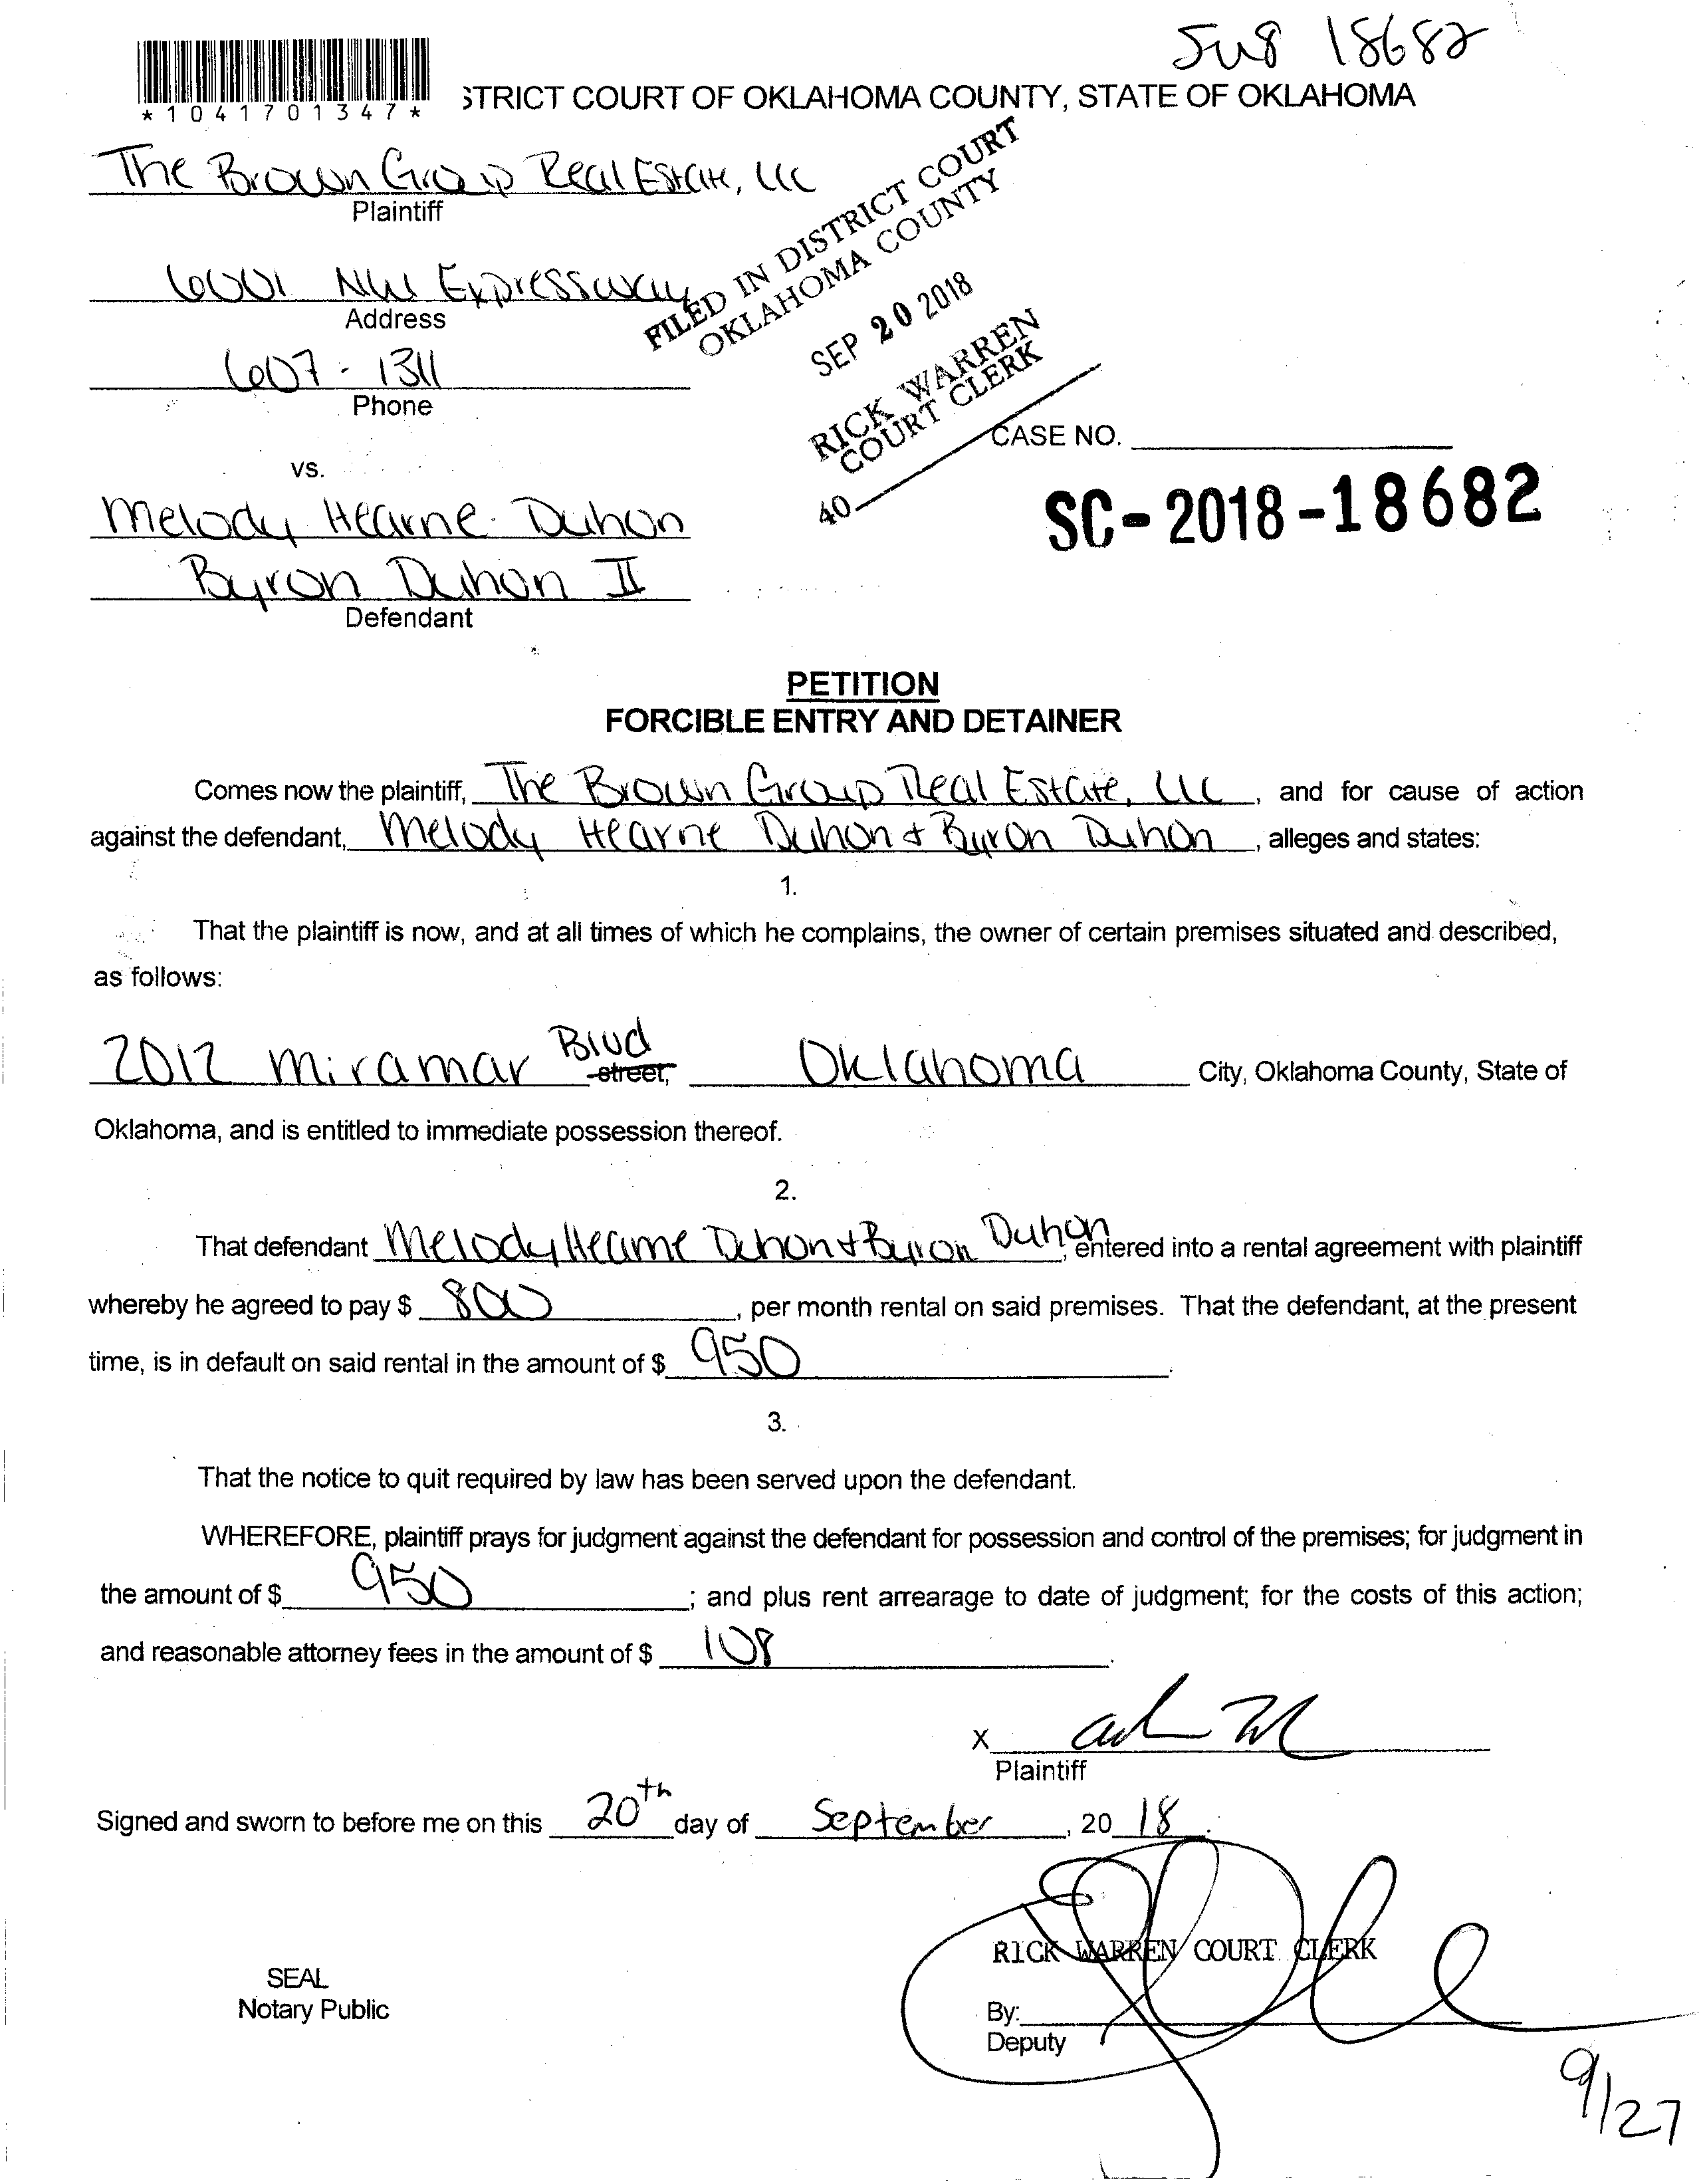 Su8 18682
*1041701347*
STRICT COURT OF OKLAHOMA COUNTY, STATE OF OKLAHOMA
The Brown Group Real Estate, LLC
Plaintiff
6001 NW Expressway
Address
607-1311
Phone
FILED IN DISTRICT COURT
OKLAHOMA COUNTY
SEP 20 2018
RICK WARREN
COURT CLERK
40
CASE NO.
SC-2018-18682
vs.
Melody Hearne-Duhon
Byron Duhon II
Defendant
PETITION
FORCIBLE ENTRY AND DETAINER
Comes now the plaintiff, The Brown Group Real Estate, LLC, and for cause of action
against the defendant, Melody Hearne Duhon + Byron Duhon, alleges and states:
1.
That the plaintiff is now, and at all times of which he complains, the owner of certain premises situated and described,
as follows:
2012 Miramar Blvd street, Oklahoma City, Oklahoma County, State of
Oklahoma, and is entitled to immediate possession thereof.
2.
That defendant Melody Hearne Duhon + Byron Duhon, entered into a rental agreement with plaintiff
whereby he agreed to pay $ 800, per month rental on said premises. That the defendant, at the present
time, is in default on said rental in the amount of $ 950.
3.
That the notice to quit required by law has been served upon the defendant.
WHEREFORE, plaintiff prays for judgment against the defendant for possession and control of the premises; for judgment in
the amount of $ 950; and plus rent arrearage to date of judgment; for the costs of this action;
and reasonable attorney fees in the amount of $ 108.
X
Plaintiff
Signed and sworn to before me on this 20th day of September, 2018.
RICK WARREN COURT CLERK
SEAL
Notary Public
By:
Deputy
9/27